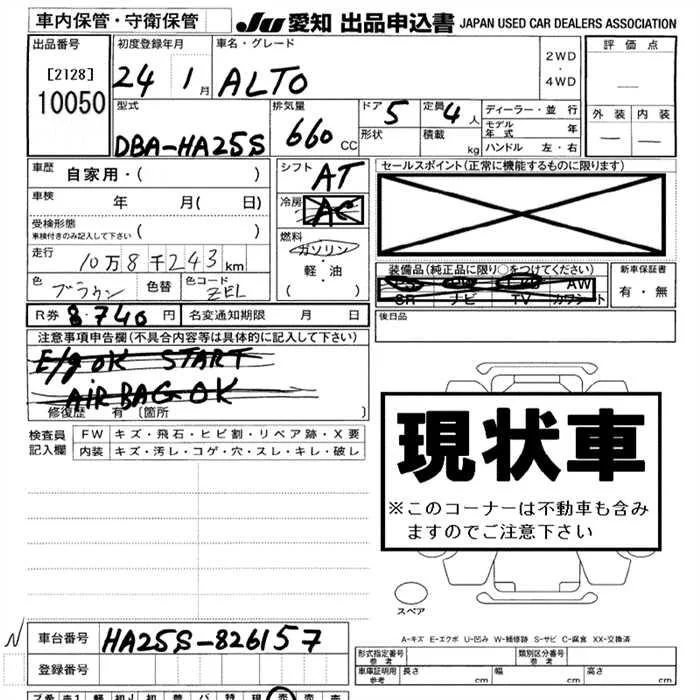 車内保管・守衛保管
JU 愛知 出品申込書 JAPAN USED CAR DEALERS ASSOCIATION
出品番号
[2128]
10050
初度登録年月
24 1月
車名・グレード
ALTO
2WD
・
4WD
評価点
外装 内装
型式
DBA-HA25S
排気量
660 CC
ドア 5
形状
定員 4人
積載 kg
ディーラー・並行
モデル年式 年
ハンドル 左・右
車歴 自家用・( )
車検 年 月( 日)
受検形態
車検付きのみ記入して下さい ( )
走行
10万8千243km
色 ブラウン
色替
色コード ZEL
シフト AT
冷房 AC
燃料
ガソリン
・
軽・油
( )
セールスポイント(正常に機能するものに限ります)
装備品(純正品に限り○をつけてください)
AW
SR ナビ TV カワシート
新車保証書
有・無
後日品
R券 8,740円
名変通知期限 月 日
注意事項申告欄(不具合内容等は具体的に記入して下さい)
E/g OK START
AIR BAG OK
修復歴 有〔箇所 〕
検査員記入欄
FW キズ・飛石・ヒビ割・リペア跡・X要
内装 キズ・汚レ・コゲ・穴・スレ・キレ・破レ
現状車
※このコーナーは不動車も含み
ますのでご注意下さい
スペア
A-キズ E-エクボ U-凹み W-補修跡 S-サビ C-腐食 XX-交換済
車台番号 HA25S-826157
登録番号
形式指定番号 参考
類別区分番号 参考
車庫証明用 参考
長さ 幅 高さ